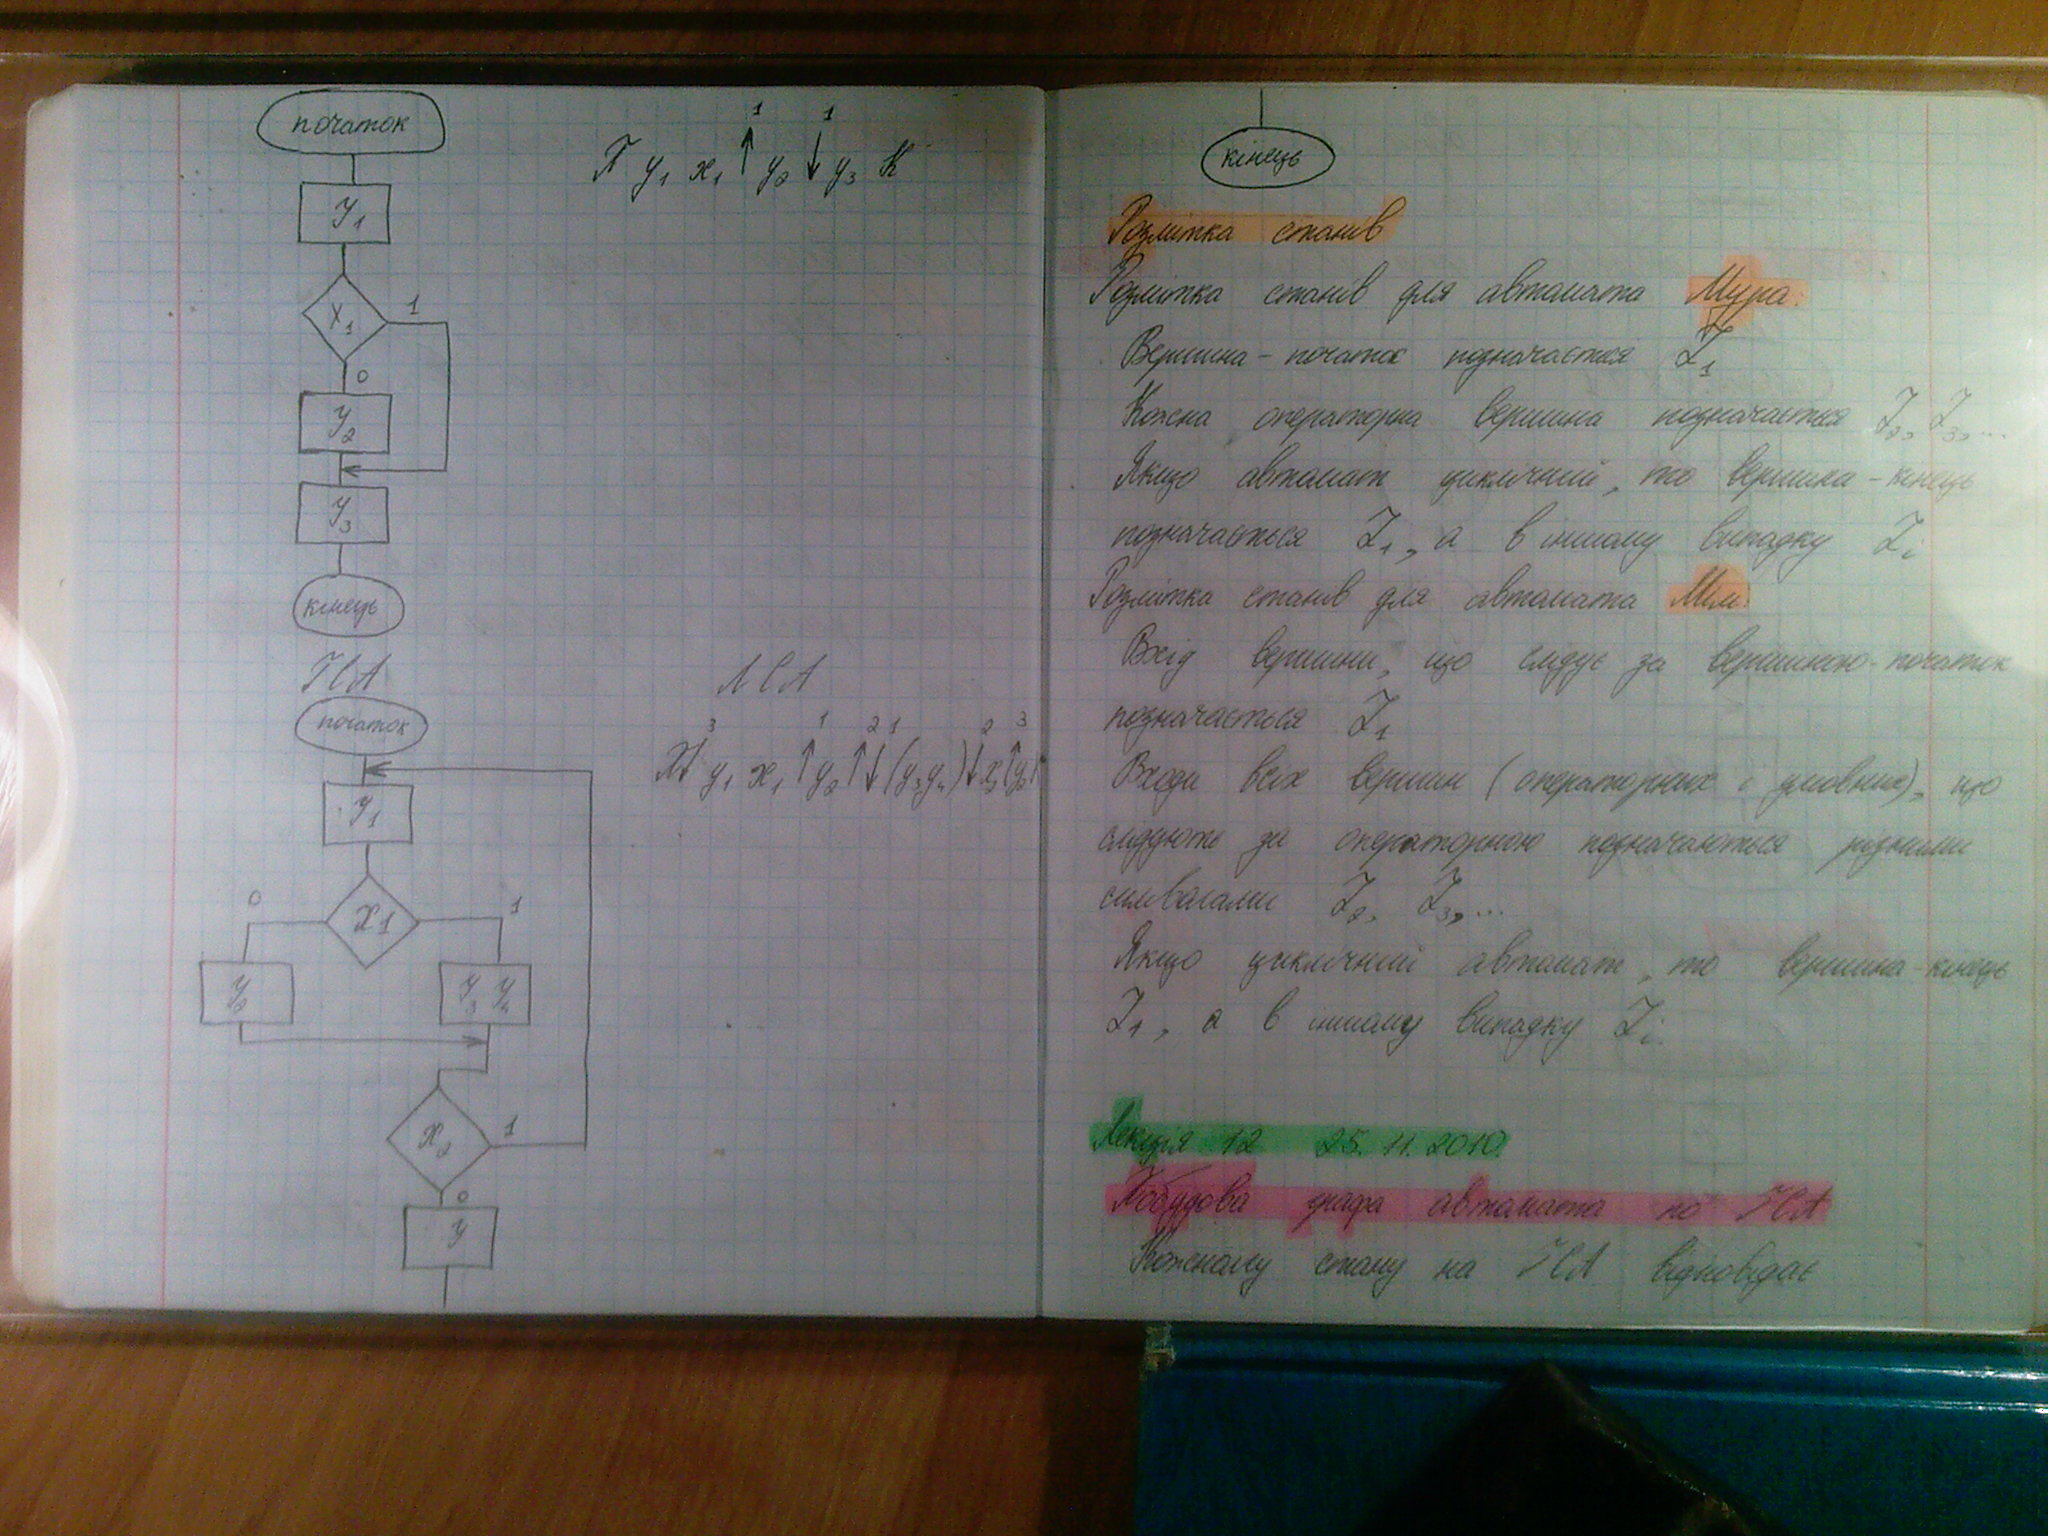 початок
П y1 x1 ↑1 y2 ↓1 y3 К
y1
x1 1
0
y2
y3
кінець
ГСА
ЛСА
початок
П↓3 y1 x1 ↑1 y2 ↑2 ↓1 (y3 y4) ↓2 x2 ↑3
y1
0 x1 1
y2
y3 y4
x2 1
0
y
кінець
Розмітка станів
Розмітка станів для автомата Мура:
Вершина-початок позначається Z1
Кожна операторна вершина позначається Z2, Z3, ...
Якщо автомат циклічний, то вершина-кінець
позначається Z1, а в іншому випадку Zi
Розмітка станів для автомата Мілі:
Вхід вершини, що слідує за вершиною-початок
позначається Z1
Входи всіх вершин (операторних і умовних), що
слідують за операторною позначаються різними
символами Z2, Z3, ...
Якщо циклічний автомат, то вершина-кінець
Z1, а в іншому випадку Zi
Лекція 12 25.11.2010
Побудова графа автомата по ГСА
Кожному стану на ГСА відповідає